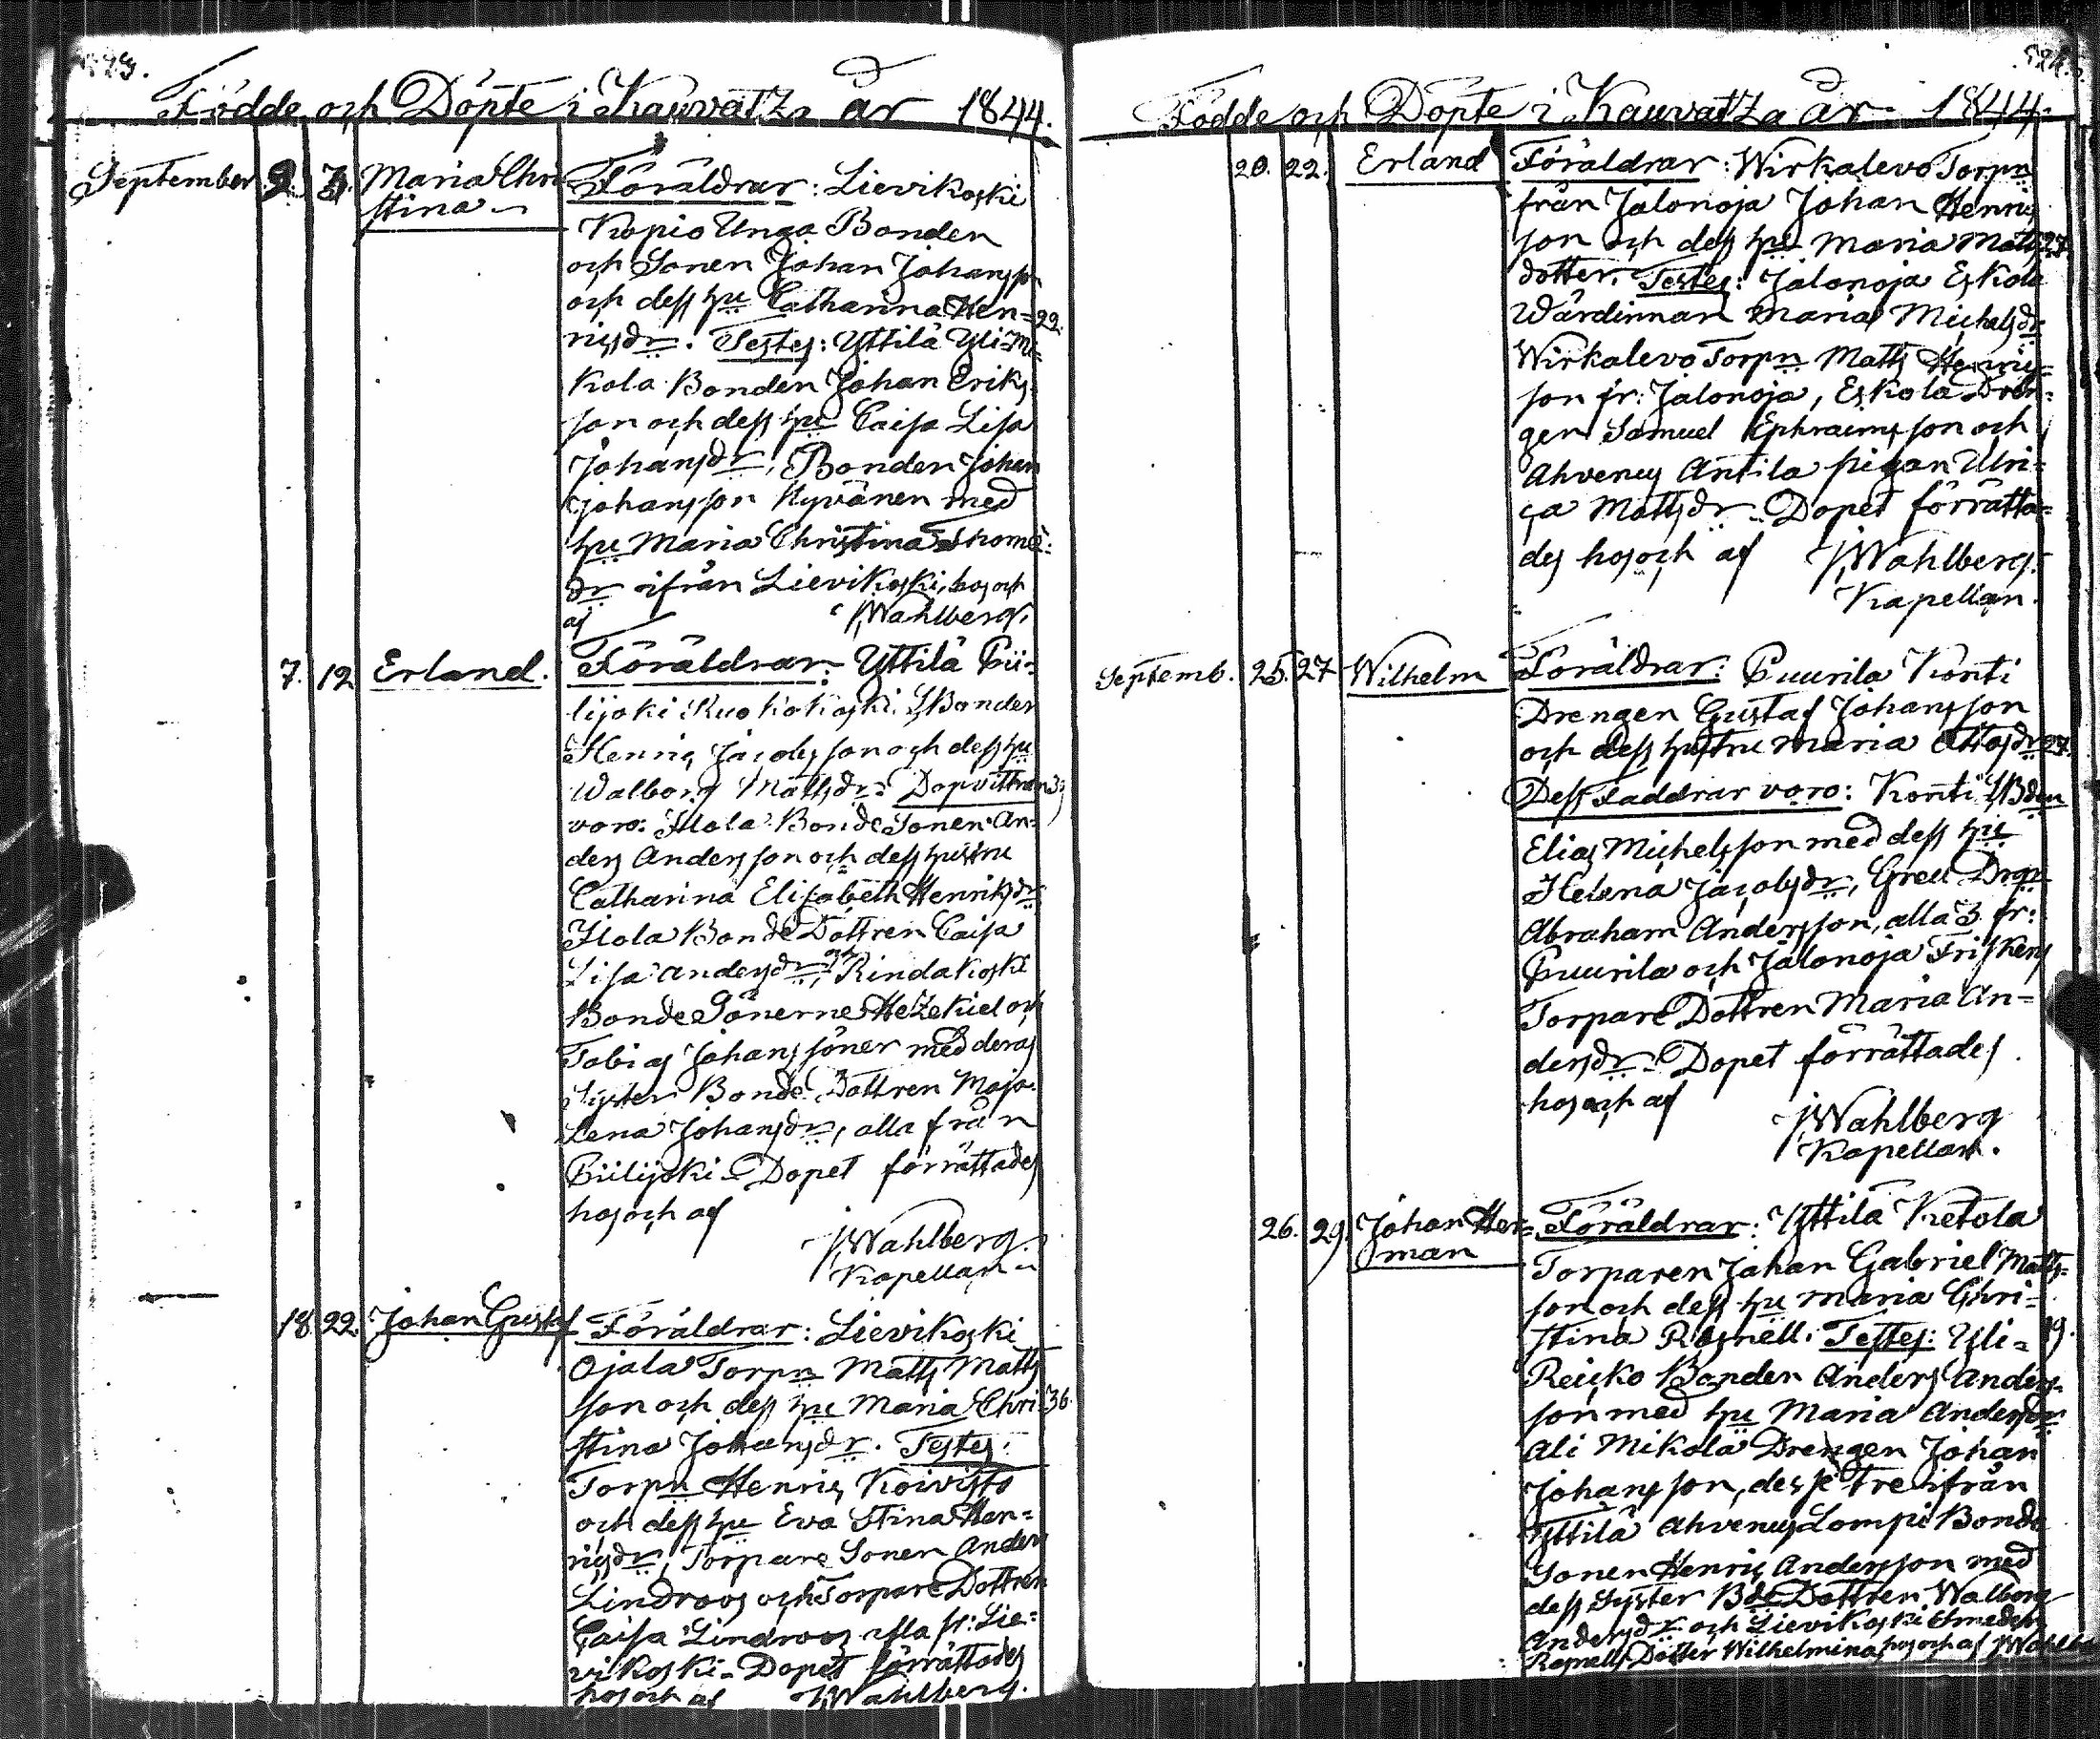 Födde och Döpte i Kauvatza år 1844.
September 2. 3. Maria Chri
stina
Föräldrar: Lievikoski
Kopio Unga Bonden
och Sonen Johan Johansson
och dess hu Catharina Hen= 22.
ricsdr. Testes: Yttilä Yli=Mi=
kola Bonden Johan Eriks
son och dess hu Caisa Lisa
Johansdr, Bonden Johan
Johansson Hyvänen med
hu Maria Christina Thomæ
dr ifrån Lievikoski, hos och
af J,Wahlberg.
7. 12 Erland. Föräldrar: Yttilä Pii=
lijoki Ruokokoski Bonden
Henric Jacobsson och dess hu
Walborg Mattsdr. Dopvittnen
voro: Ilola Bonde Sonen An=
ders Andersson och dess hustru
Catharina Elisabeth Henriksdr
Ilola Bonde Dottren Caisa
Lisa Andersdr, och Rindakoski
Bonde Sönerne Hezekiel och
Tobias Johanssöner med deras
Syster Bonde Dottren Maja
Lena Johansdr, alla från
Piilijoki. Dopet förrättades
hos och af
J,Wahlberg.
Kapellan
18. 22. Johan Gustaf Föräldrar: Lievikoski
Ojala Torpn Matts Matts
son och dess hu Maria Chri= 36.
stina Johansdr. Testes:
Torpn Henric Koivisto
och dess hu Eva Stina Hen=
ricsdr, Torpare Sonen Anders
Lindroos och Torpare Dottren
Caisa Lindroos alla fr: Lie=
vikoski. Dopet förrättades
hos och af J,Wahlberg.
Födde och Döpte i Kauvatza år 1844.
20. 22. Erland Föräldrar: Wirkalevo Torpn
från Jalonoja Johan Henrics
son och dess hu Maria Matts 27
dotter. Testes: Jalonoja Eskola
Wärdinnan Maria Michelsdr
Wirkalevo Torpn Matts Henrics=
son fr: Jalonoja, Eskola Drän=
gen Samuel Ephraimsson och
Ahvenus Anttila pigan Ulri=
ca Mattsdr. Dopet förrätta=
des hos och af J,Wahlberg.
Kapellan.
Septemb. 25. 27 Wilhelm Föräldrar: Puurila Konti
Drengen Gustaf Johansson
och dess hustru Maria Mattsdr 27.
Dess Faddrar voro: Konti Bden
Elias Michelsson med dess hu
Helena Jacobsdr, Greu Drgn
Abraham Andersson, alla 3. fr:
Puurila och Jalonoja Friskens
Torpare Dottren Maria An=
dersdr. Dopet förrättades
hos och af
J,Wahlberg
Kapellan.
26. 29. Johan Her=
man
Föräldrar: Yttilä Ketola
Torparen Johan Gabriel Matts=
son och dess hu Maria Chri=
stina Rosnell. Testes: Yli=
Reicko Bonden Anders Anders=
son med hu Maria Andersdr
Ali Mikola Drengen Johan
Johansson, desse tre ifrån
Yttilä Ahvenus Lompi Bonde
Sonen Henric Andersson med
dess Syster Bde Dottren Walborg
Andersdr och Lievikoski Smeden
Rosnells Dotter Wilhelmina, hos och af J,Wahlberg